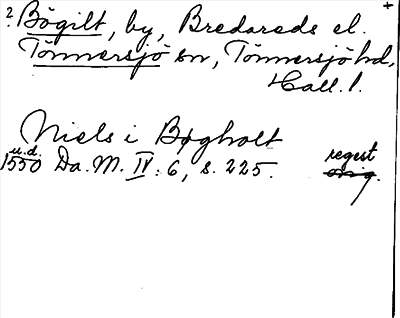 ? Bögilt, by, Bredareds el. +
Tönnersjö sn, Tönnersjö hd,
Hall. l.
Niels i Bøgholt
u.d.
1550 Da. M. IV: 6, s. 225. regest
orig.